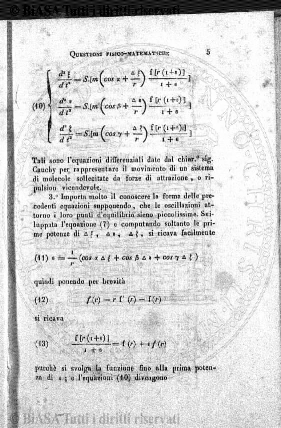 © BiASA Tutti i diritti riservati
QUESTIONI FISICO-MATEMATICHE 5
d²ξ/dt² = S.[m (cos α + Δξ/r) f[r(1+ε)]/(1+ε)]
(10) d²η/dt² = S.[m (cos β + Δη/r) f[r(1+ε)]/(1+ε)]
d²ζ/dt² = S.[m (cos γ + Δζ/r) f[r(1+ε)]/(1+ε)]
Tali sono l'equazioni differenziali date dal chiar.° sig.
Cauchy per rappresentare il movimento di un sistema
di molecole sollecitate da forze di attrazione, o ri-
pulsion vicendevole.
3.° Importa molto il conoscere la forma delle pre-
cedenti equazioni supponendo, che le oscillazioni at-
torno i loro punti d'equilibrio sieno piccolissime. Svi-
luppata l'equazione (7) e computando soltanto le pri-
me potenze di Δξ, Δη, Δζ, si ricava facilmente
(11) ε = 1/r (cos α Δξ + cos β Δη + cos γ Δζ)
quindi ponendo per brevità
(12) f(r) = r f'(r) − f(r)
si ricava
(13) f[r(1+ε)]/(1+ε) = f(r) + εf(r)
purchè si svolga la funzione fino alla prima poten-
za di ε; e l'equazioni (10) divengono
© BiASA Tutti i diritti riservati